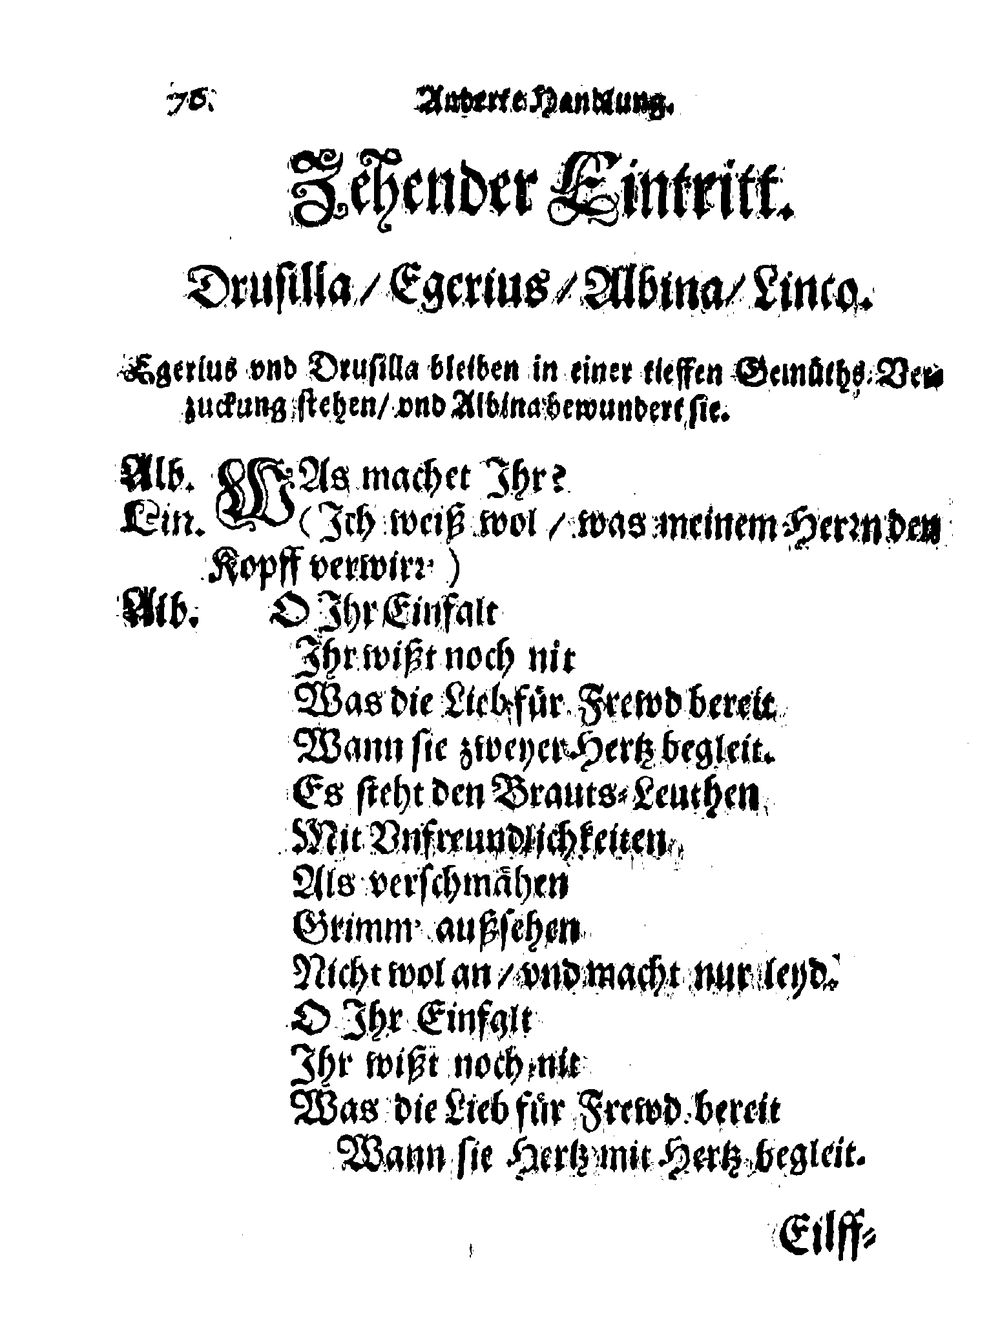 76. Anderte Handlung.
Zehender Eintritt.
Drusilla / Egerius / Albina / Linco.
Egerius vnd Drusilla bleiben in einer tieffen Gemüths-Ver-
zuckung stehen / vnd Albina bewundert sie.
Alb. WAs machet Ihr?
Lin. (Ich weiß wol / was meinem Herrn den
Kopff verwirr')
Alb. O Ihr Einfalt
Ihr wißt noch nit
Was die Lieb für Frewd bereit
Wann sie zweyer Hertz begleit.
Es steht den Brauts-Leuthen
Mit Vnfreundlichkeiten
Als verschmähen
Grimm' außsehen
Nicht wol an / vnd macht nur leyd.
O Ihr Einfalt
Ihr wißt noch nit
Was die Lieb für Frewd bereit
Wann sie Hertz mit Hertz begleit.
Eilff-